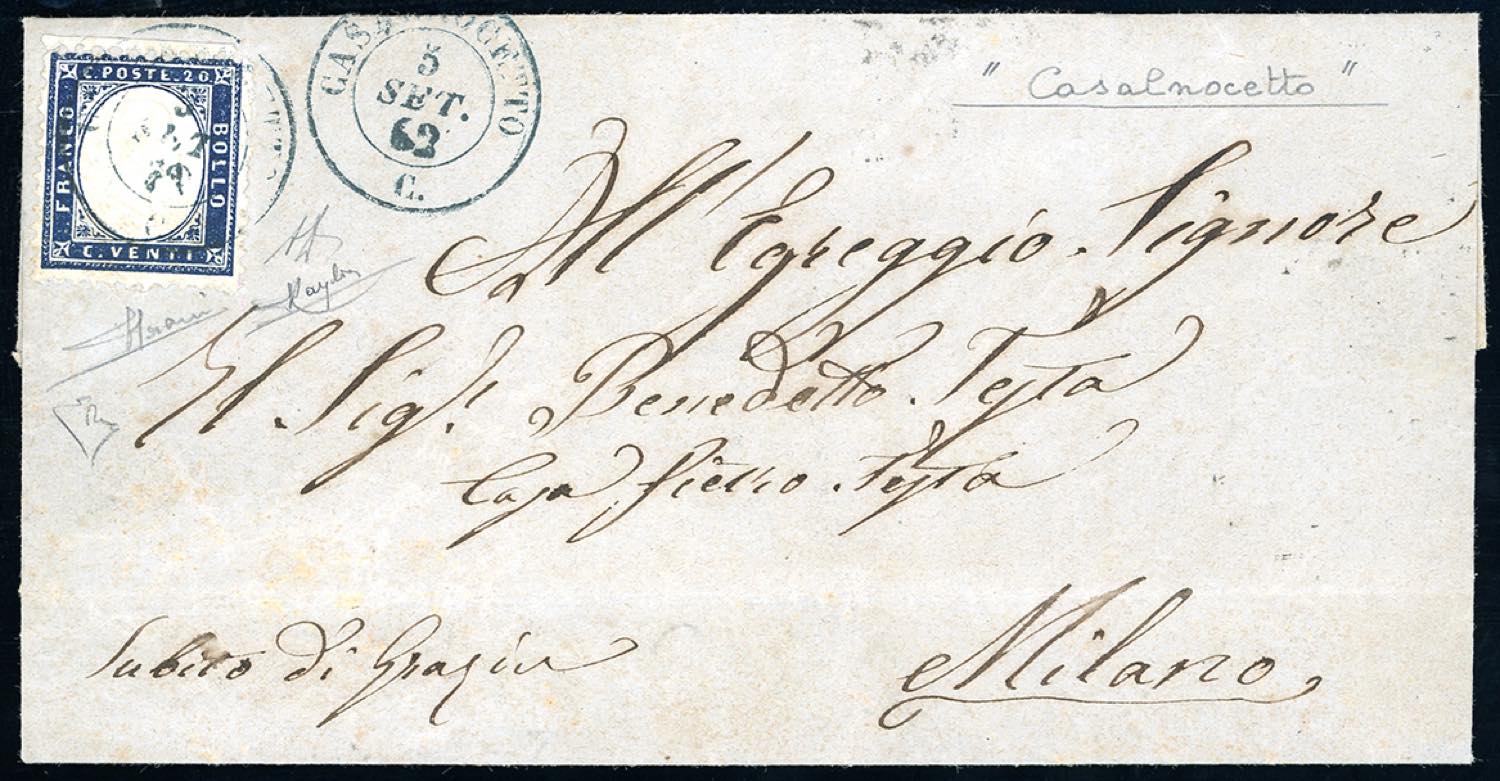 C. POSTE. 20
FRANCO
BOLLO
C. VENTI
CASALNOCETTO
5
SET.
62
C.
" Casalnocetto "
All' Egreggio Signore
Il Sigr. Benedetto Testa
Casa Pietro Testa
Subito di Grazia
Milano